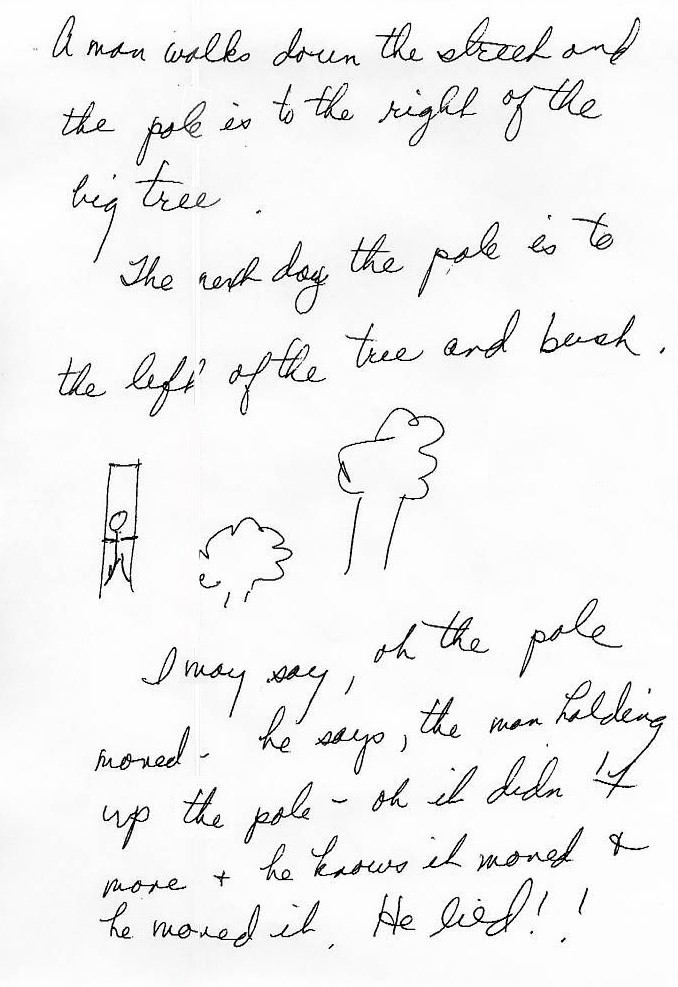 A man walks down the street and
the pole is to the right of the
big tree.
The next day the pole is to
the left of the tree and bush.
I may say, oh the pole
moved - he says, the man holding
up the pole - oh it didn't
move + he knows it moved &
he moved it. He lied!!